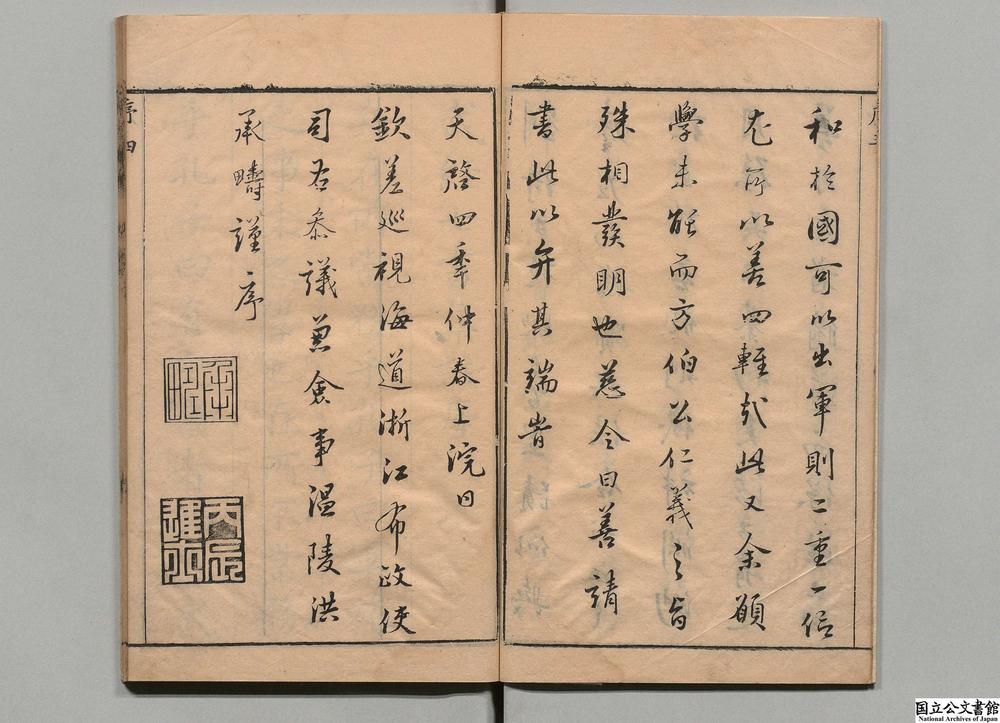 和於國可以出軍則二重一信
尤所以善四輕哉此又余願
學未能而方伯公仁義之旨
殊相發明也慈令曰善請
書此以弁其端峕
天啓四年仲春上浣日
欽差巡視海道浙江布政使
司右參議兼僉事温陵洪
承疇謹序
丙辰進士
序四
国立公文書館
National Archives of Japan